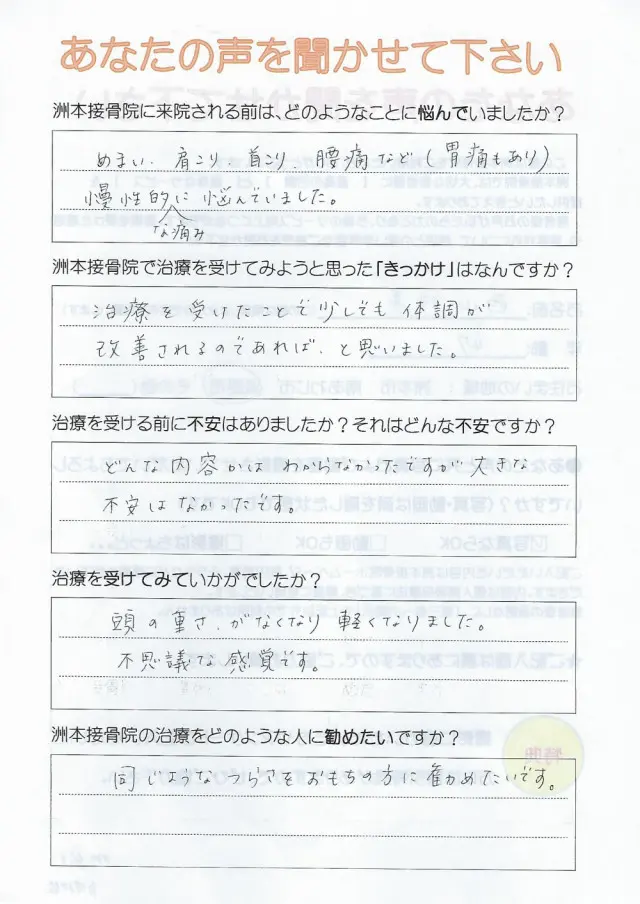 あなたの声を聞かせて下さい
洲本接骨院に来院される前は、どのようなことに悩んでいましたか？
めまい、肩こり、首こり、腰痛など(胃痛もあり)
慢性的に悩んでいました。
な痛み
洲本接骨院で治療を受けてみようと思った「きっかけ」はなんですか？
治療を受けたことで少しでも体調が
改善されるのであれば、と思いました。
治療を受ける前に不安はありましたか？それはどんな不安ですか？
どんな内容かは わからなかったですが 大きな
不安は なかったです。
治療を受けてみていかがでしたか？
頭の重さ、がなくなり 軽くなりました。
不思議な感覚です。
洲本接骨院の治療をどのような人に勧めたいですか？
同じような つらさを おもちの方に 勧めたいです。
特典